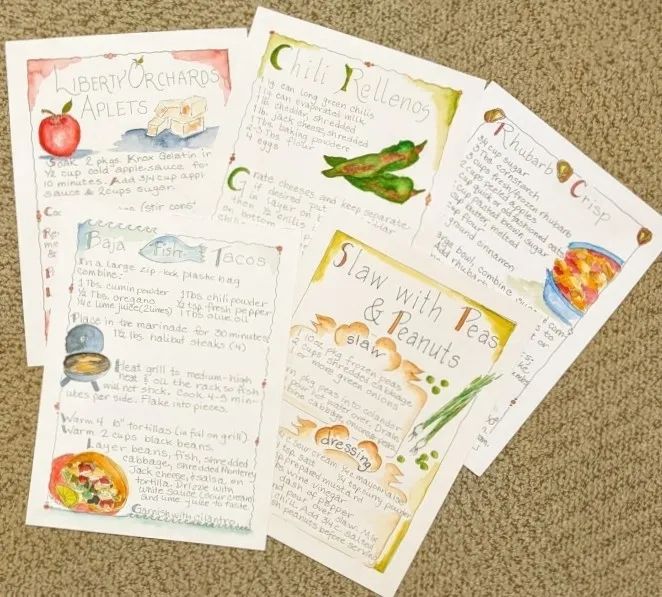 LIBERTY ORCHARDS
APLETS
Soak 2 pkgs. Knox Gelatin in
1/2 cup cold applesauce for
10 minutes. Add 3/4 cup apple
sauce & 2 cups sugar.
(stir const
Chili Rellenos
can long green chilis
1 can evaporated milk
1 lb cheddar shredded
1 lb. jack cheese, shredded
1 Tbls. baking powder
2-3 Tbls flour
eggs
Grate cheeses and keep separate
if desired. Put
in layer on
then 1/2 chilis
on bottom
Rhubarb Crisp
3/4 cup sugar
3 Tbls. cornstarch
3 cups fresh/frozen rhubarb
cups peeled apples
cup quick or old fashioned oats
cup packed brown sugar
cup butter, melted
cup flour
ground cinnamon
large bowl, combine
Add rhubarb
Baja Fish Tacos
In a large zip-lock plastic bag
combine:
1 Tbls. cumin powder 1 Tbls chili powder
1/2 Tbls. oregano 1/2 tsp fresh pepper
1/4 c lime juice (2 limes) 1 Tbls olive oil
Place in the marinade for 30 minutes
1 1/2 lbs. halibut steaks (4)
Heat grill to medium-high
heat & oil the rack so fish
will not stick. Cook 4-5 min-
utes per side. Flake into pieces.
Warm 4 10" tortillas (in foil on grill).
Warm 2 cups black beans.
Layer beans, fish, shredded
cabbage, shredded Monterey
Jack cheese, & salsa, on
tortilla. Drizzle with
white sauce (sour cream
and lime juice to taste)
Garnish with cilantro
Slaw with Peas
& Peanuts
slaw
10oz pkg frozen peas
2 cups shredded cabbage
or more green onions
pkg peas into colander
Pour hot water over. Drain.
cabbage, onions, peas
dressing
c sour cream 1/4 c mayonnaise
tsp salt 1/4 tsp curry powder
prepared mustard
wine vinegar
dash of pepper
and pour over slaw. Mix
chill. Add 3/4 c salted
peanuts before serving